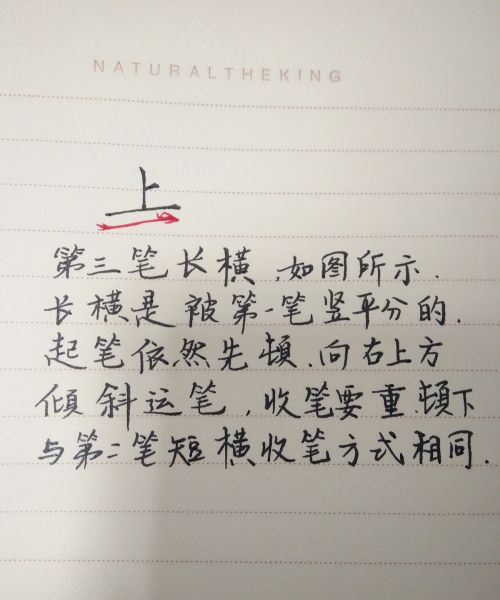 NATURALTHEKING
上
第三笔长横,如图所示.
长横是被第一笔竖平分的.
起笔依然先頓.向右上方
傾斜运笔,收笔要重頓下
与第二笔短横收笔方式相同.